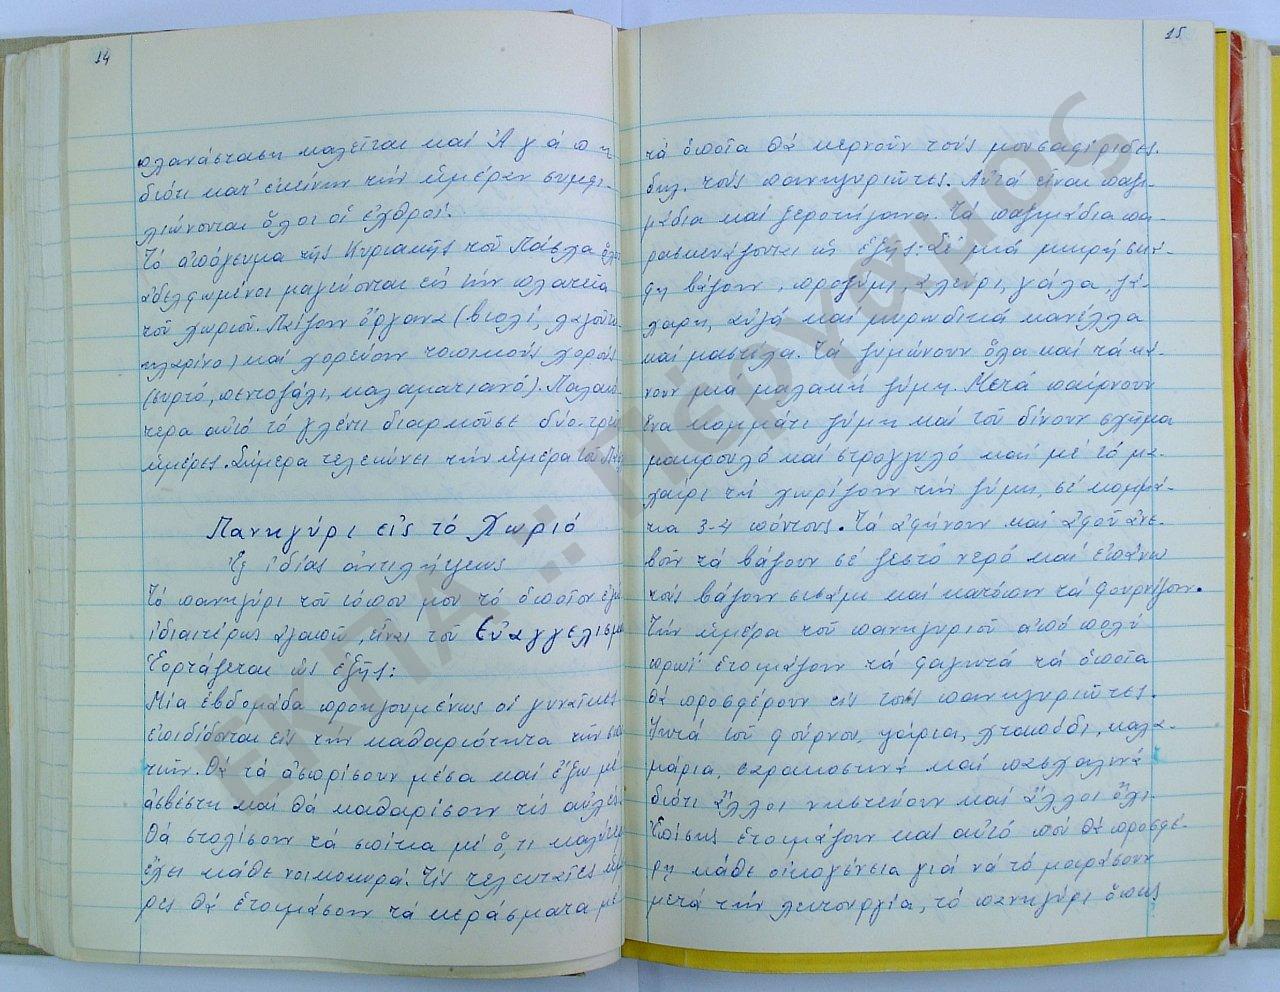 14
πλανάσταση καλεῖται καί Ἀγάπη
διότι κατ' ἐκείνην τήν ἡμέραν συμφι-
λιώνονται ὅλοι οἱ ἐχθροί.
Τό ἀπόγευμα τῆς Κυριακῆς τοῦ Πάσχα ὅλοι
ἀδελφωμένοι μαζεύονται εἰς τήν πλατεῖα
τοῦ χωριοῦ. Παίζουν ὄργανα (βιολί, λαγοῦτο
κλαρίνο) καί χορεύουν τοπικούς χορούς
(συρτό, πεντοζάλι, καλαματιανό). Παλαιό-
τερα αὐτό τό γλέντι διαρκοῦσε δύο-τρεῖς
ἡμέρες. Σήμερα τελειώνει τήν ἡμέρα τοῦ
Πανηγύρι εἰς τό Χωριό
Ἐξ ἰδίας ἀντιλήψεως
Τό πανηγύρι τοῦ τόπου μου τό ὁποῖον ἐγώ
ἰδιαιτέρως ἀγαπῶ, εἶναι τοῦ Εὐαγγελισμοῦ
Ἑορτάζεται ὡς ἑξῆς:
Μία ἑβδομάδα προηγουμένως οἱ γυναῖκες
ἐπιδίδονται εἰς τήν καθαριότητα τῶν σπι-
τιῶν. Θά τά ἀσπρίσουν μέσα καί ἔξω μέ
ἀσβέστη καί θά καθαρίσουν τίς αὐλές.
Θά στολίσουν τά σπίτια μέ ὅ,τι καλύτερο
ἔχει κάθε νοικοκυρά. Τίς τελευταῖες ἡμέ-
ρες θά ἑτοιμάσουν τά κεράσματα μέ
15
τά ὁποῖα θά κερνοῦν τούς μουσαφίριδες.
δηλ. τούς πανηγυριῶτες. Αὐτά εἶναι παξι-
μάδια καί ξεροτήγανα. Τά παξιμάδια πα-
ρασκευάζονται ὡς ἑξῆς: Σέ μιά μικρή σκά-
φη βάζουν, προζύμι, ἀλεύρι, γάλα, ζά-
χαρη, αὐγά καί μυρωδικά κανέλλα
καί μαστίχα. Τά ζυμώνουν ὅλα καί τά κά-
νουν μιά μαλακή ζύμη. Μετά παίρνουν
ἕνα κομμάτι ζύμη καί τοῦ δίνουν σχῆμα
μακρουλό καί στρογγυλό καί μέ τό μα-
χαίρι τή χωρίζουν τήν ζύμη, σέ κομμά-
τια 3-4 πόντους. Τά ἀφήνουν καί ἀφοῦ ἀνε-
βοῦν τά βάζουν σέ ζεστό νερό καί ἐπάνω
τούς βάζουν σισάμι καί κατόπιν τά φουρνίζουν.
Τήν ἡμέρα τοῦ πανηγυριοῦ ἀπό πολύ
πρωί ἑτοιμάζουν τά φαγητά τά ὁποῖα
θά προσφέρουν εἰς τούς πανηγυριῶτες.
Ψητά τοῦ φούρνου, ψάρια, χταπόδι, καλα-
μάρια, σαρακοστινά καί πασχαλινά
διότι ἄλλοι νηστεύουν καί ἄλλοι ὄχι.
Ἐπίσης ἑτοιμάζουν καί αὐτό πού θά προσφέ-
ρη κάθε οἰκογένεια γιά νά τό μοιράσουν
μετά τήν λειτουργία, τό πανηγύρι ὅπως
ΕΚΠΑ :: Πέργαμος